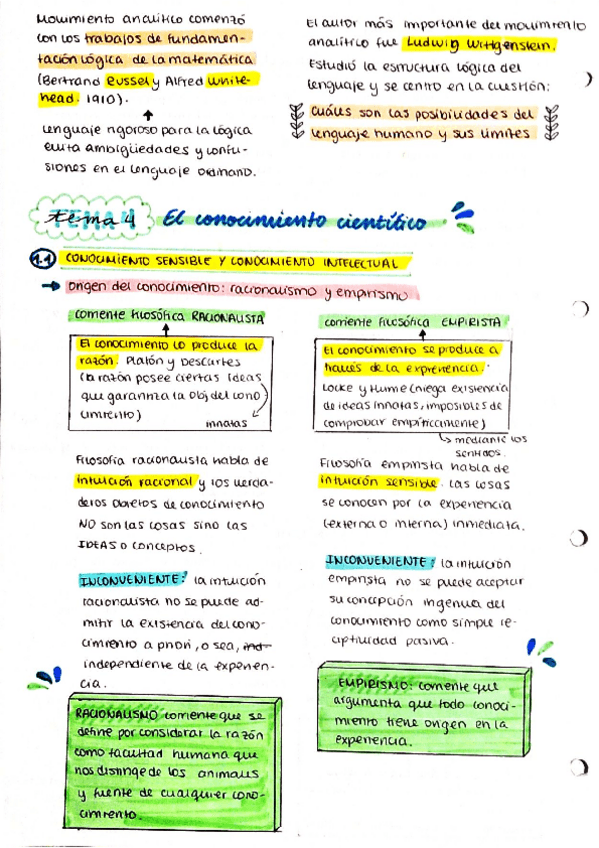 Movimiento analítico comenzó
con los trabajos de fundamen-
tación lógica de la matemática
(Bertrand Russel y Alfred White-
head. 1910).
Lenguaje rigoroso para la lógica
evita ambigüedades y confu-
siones en el lenguaje ordinario.
El autor más importante del movimiento
analítico fue Ludwig Wittgenstein.
Estudió la estructura lógica del
lenguaje y se centro en la cuestión:
Cuáles son las posibilidades del
lenguaje humano y sus límites
tema 4 El conocimiento científico
1.1 CONOCIMIENTO SENSIBLE Y CONOCIMIENTO INTELECTUAL
Origen del conocimiento: racionalismo y empirismo
corriente filosófica RACIONALISTA
El conocimiento lo produce la
razón. Platón y Descartes
(la razón posee ciertas ideas
que garantiza la obj del cono
cimiento)
innatas
Filosofía racionalista habla de
intuición racional y los verda-
deros objetos de conocimiento
NO son las cosas sino las
IDEAS o conceptos.
INCONVENIENTE: la intuición
racionalista no se puede ad-
mitir la existencia del cono-
cimiento a priori, o sea, ind-
independiente de la experien-
cia.
RACIONALISMO corriente que se
define por considerar la razón
como facultad humana que
nos distinge de los animales
y fuente de cualquier cono-
cimiento.
corriente filosófica EMPIRISTA
El conocimiento se produce a
través de la expreriencia.
Locke y Hume (niega existencia
de ideas innatas, imposibles de
comprobar empíricamente)
mediante los
sentidos.
Filosofía empirista habla de
intuición sensible. Las cosas
se conocen por la experiencia
(externa o interna) inmediata.
INCONVENIENTE: la intuición
empirista no se puede aceptar
su concepción ingenua del
conocimiento como simple re-
ceptividad pasiva.
EMPIRISMO: corriente que
argumenta que todo conoci-
miento tiene origen en la
experiencia.